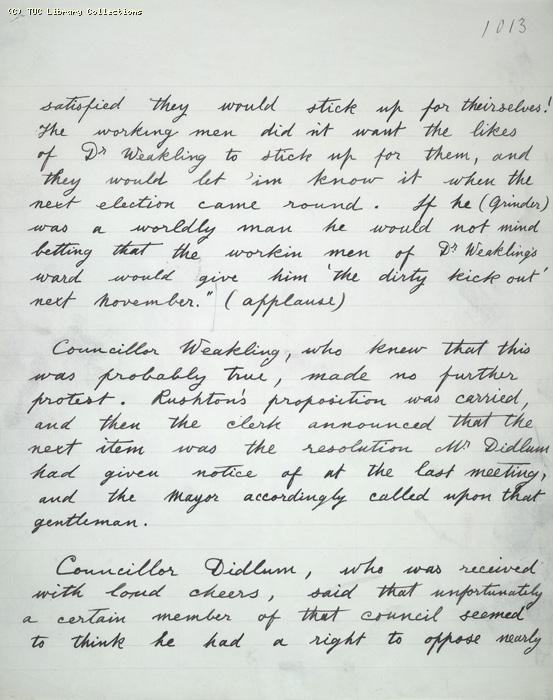 (C) TUC Library Collections
1013
satisfied they would stick up for theirselves!
The working men did n't want the likes
of Dr Weakling to stick up for them, and
they would let 'im know it when the
next election came round. If he (Grinder)
was a worldly man he would not mind
betting that the workin men of Dr Weakling's
ward would give him 'the dirty kick out'
next November." (applause)
Councillor Weakling, who knew that this
was probably true, made no further
protest. Rushton's proposition was carried,
and then the clerk announced that the
next item was the resolution Mr Didlum
had given notice of at the last meeting,
and the Mayor accordingly called upon that
gentleman.
Councillor Didlum, who was received
with loud cheers, said that unfortunately
a certain member of that council seemed
to think he had a right to oppose nearly